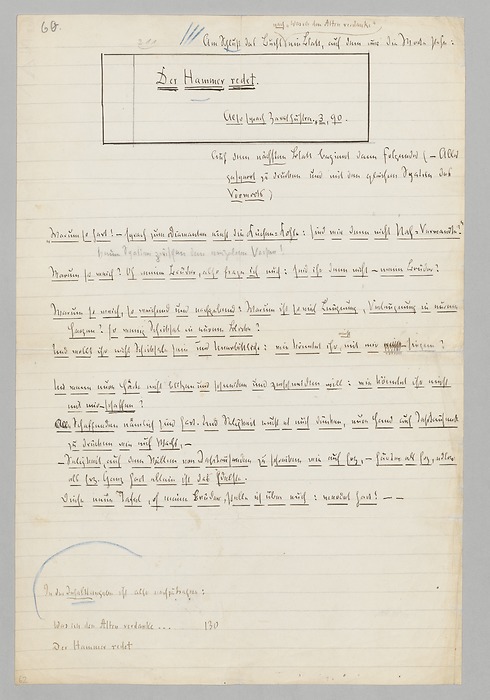 60.
nach „Was ich den Alten verdanke“
Am Schluß des Buchs ein Blatt, auf dem nur die Worte stehn:
Der Hammer redet.
Also sprach Zarathustra. 3, 90.
Auf dem nächsten Blatt beginnt dann Folgendes (— Alles
gesperrt zu drucken und mit den gleichen Spatien des
Vorworts)
„Warum so hart! — sprach zum Diamanten einst die Küchen-Kohle: sind wir denn nicht Nah-Verwandte?“
Spatien zwischen den einzelnen Versen!
Warum so weich? Oh meine Brüder, also frage ich euch: seid ihr denn nicht — meine Brüder?
Warum so weich, so weichend und nachgebend? Warum ist so viel Leugnung, Verleugnung in eurem
Herzen? so wenig Schicksal in eurem Blicke?
Und wollt ihr nicht Schicksale sein und Unerbittliche: wie könntet ihr einst mit mir siegen?
Und wenn eure Härte nicht blitzen und schneiden und zerschneiden will: wie könntet ihr einst
mit mir schaffen?
Alle Schaffenden nämlich sind hart. Und Seligkeit muß es euch dünken, eure Hand auf Jahrtausende
zu drücken wie auf Wachs, —
— Seligkeit, auf dem Willen von Jahrtausenden zu schreiben wie auf Erz, — härter als Erz, edler
als Erz. Ganz hart allein ist das Edelste.
Diese neue Tafel, oh meine Brüder, stelle ich über euch: werdet hart! — —
In der Inhaltsangabe ist also nachzutragen:
Was ich den Alten verdanke ... 130
Der Hammer redet